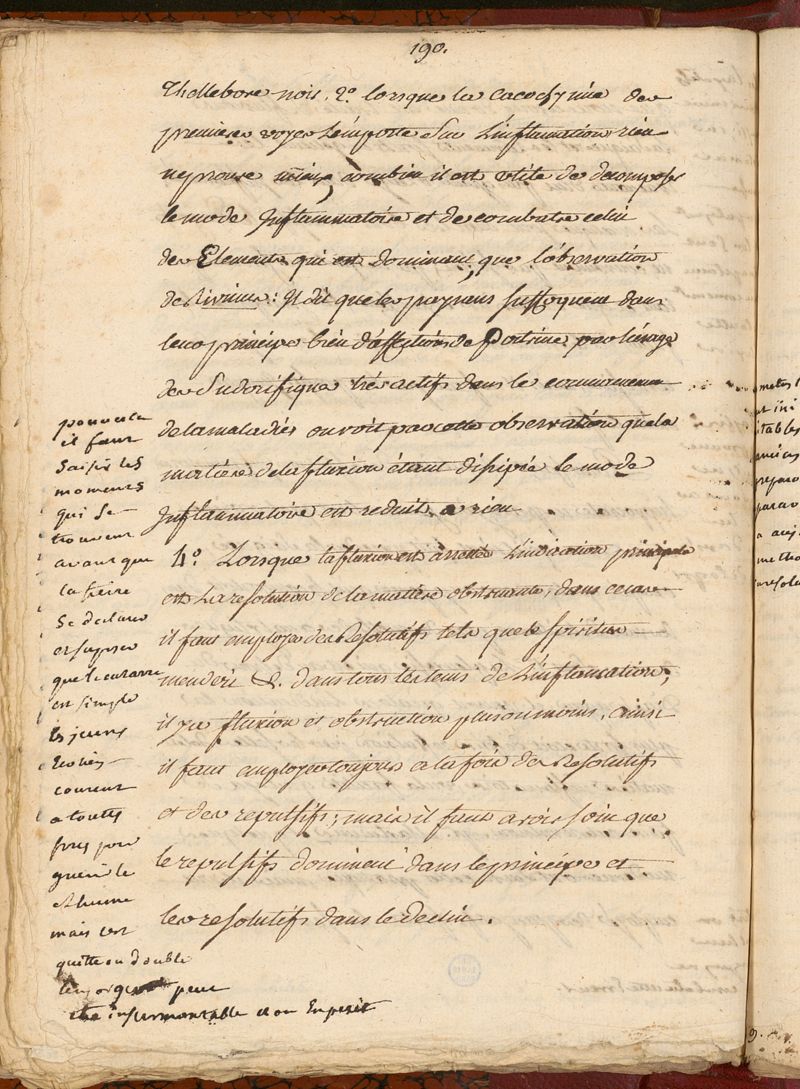 190.
l'hellebore noir. 2.° lorsque la cacochymie des
premieres voyes l'emporte sur l'inflamation, rien
ne prouve mieux combien il est utile de decomposer
le mode Inflammatoire et de combatre celui
des Elements qui est dominant, que l'observation
de Rivrius: Il dit que les paysans suffoquent dans
leur principe bien d'affections de Poitrine par l'usage
des Sudorifiques trés actifs dans le commencement
de la maladies on voit par cette observation que la
matiére de la fluxion étant disipée le mode
Inflammatoire est reduit a rien
4.° Lorsque la fluxion est arretée l'indication principale
est la resolution de la matiére obstruante, dans ce cas
il faut employer des Resolutifs tels que le spiritus
mendereri &. dans tous les tems de l'inflamation,
il y a fluxion et obstruction plus ou moins, ainsi
il faut employer toujours a la fois des Resolutifs
et des repulsifs; mais il faut avoir soin que
le repulsifs dominent dans le principe et
les resolutifs dans le declin.
pour cela
il faut
saisir les
moments
qui se
trouvent
avant que
la fievre
se declare
et suposer
que le catarre
est simple
les jeunes
courent
a toutes
guerir le
rhume
mais c'est
quitte ou double
peut
etre insurmontable et on En perit